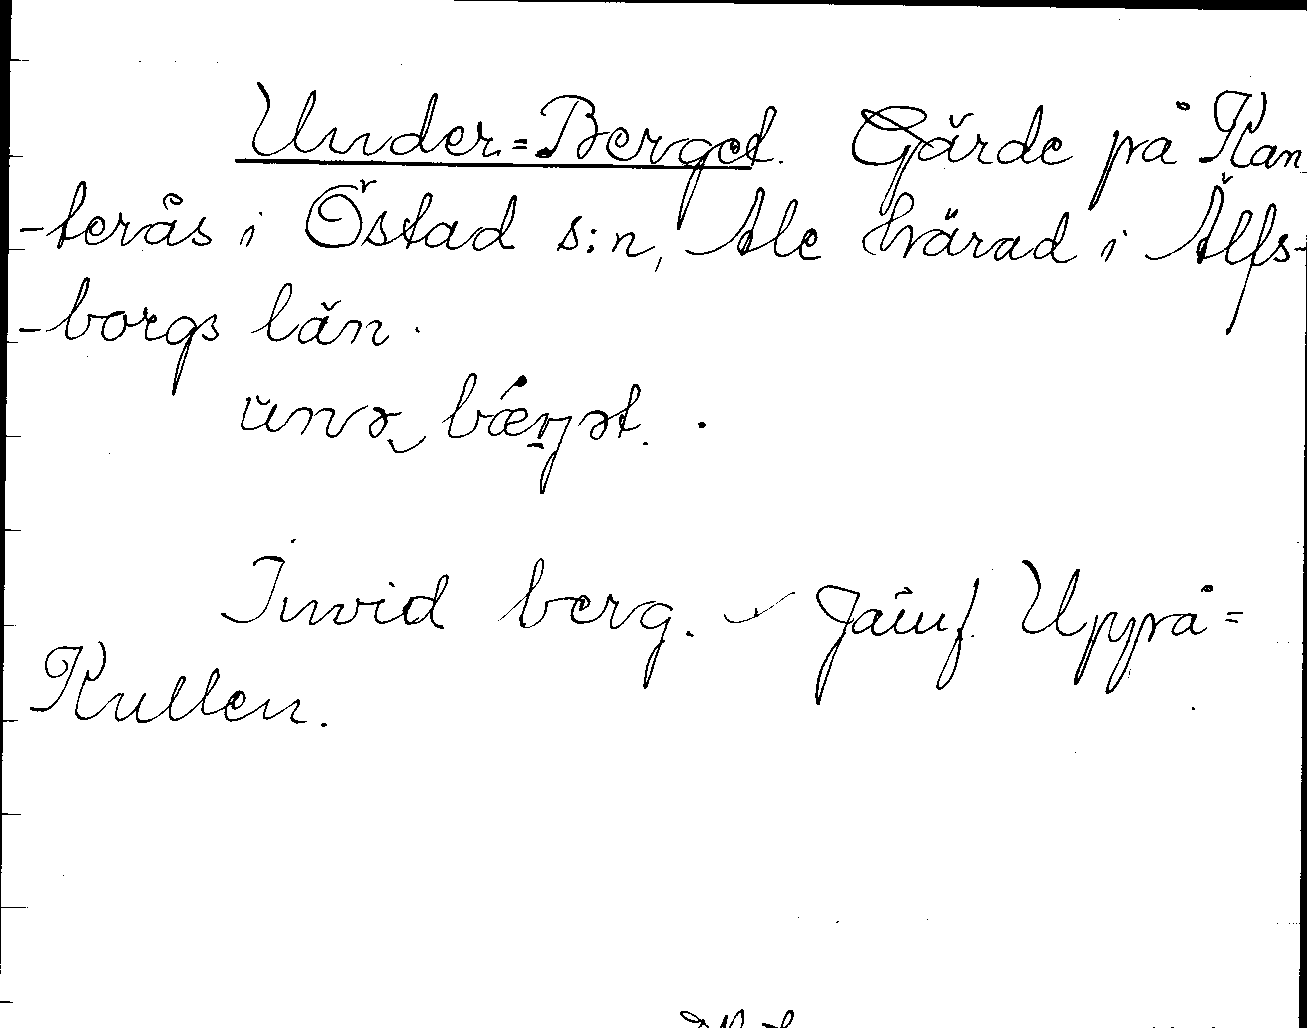 Under-Berget. Gärde på Kan
-terås i Östad s:n, Ale härad i Älfs-
-borgs län.
unə bǽŋət.
Invid berg. Jämf. Uppå-
Kullen.